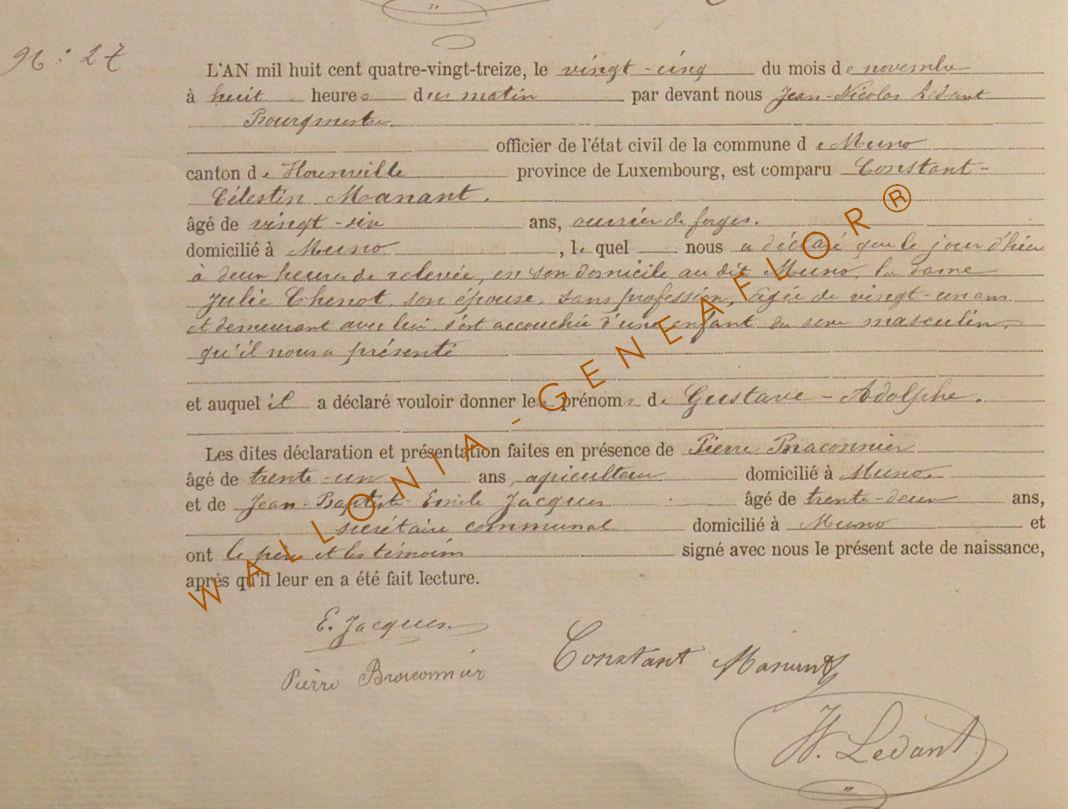 N: 27
L'AN mil huit cent quatre-vingt-treize, le vingt-cinq du mois de novembre
à huit heures du matin par devant nous Jean-Nicolas Ledant
Bourgmestre
officier de l'état civil de la commune de Muno
canton de Florenville province de Luxembourg, est comparu Constant-
Célestin Manant.
âgé de vingt-six ans, ouvrier de forges.
domicilié à Muno, le quel nous a déclaré que le jour d'hier
à deux heures de relevée, en son domicile au dit Muno, la dame
Julie Chenot, son épouse, sans profession, âgée de vingt-un ans
et demeurant avec lui s'est accouchée d'un enfant du sexe masculin,
qu'il nous a présenté
et auquel il a déclaré vouloir donner les prénoms de Gustave-Adolphe.
Les dites déclaration et présentation faites en présence de Pierre Braconnier
âgé de trente-un ans, apiculteur domicilié à Muno,
et de Jean-Baptiste Emile Jacques âgé de trente-deux ans,
secrétaire communal domicilié à Muno et
ont le père et les témoins signé avec nous le présent acte de naissance,
après qu'il leur en a été fait lecture.
E. Jacques.
Pierre Braconnier
Constant Manant
N. Ledant
WALLONIA-GENEAFLOR®